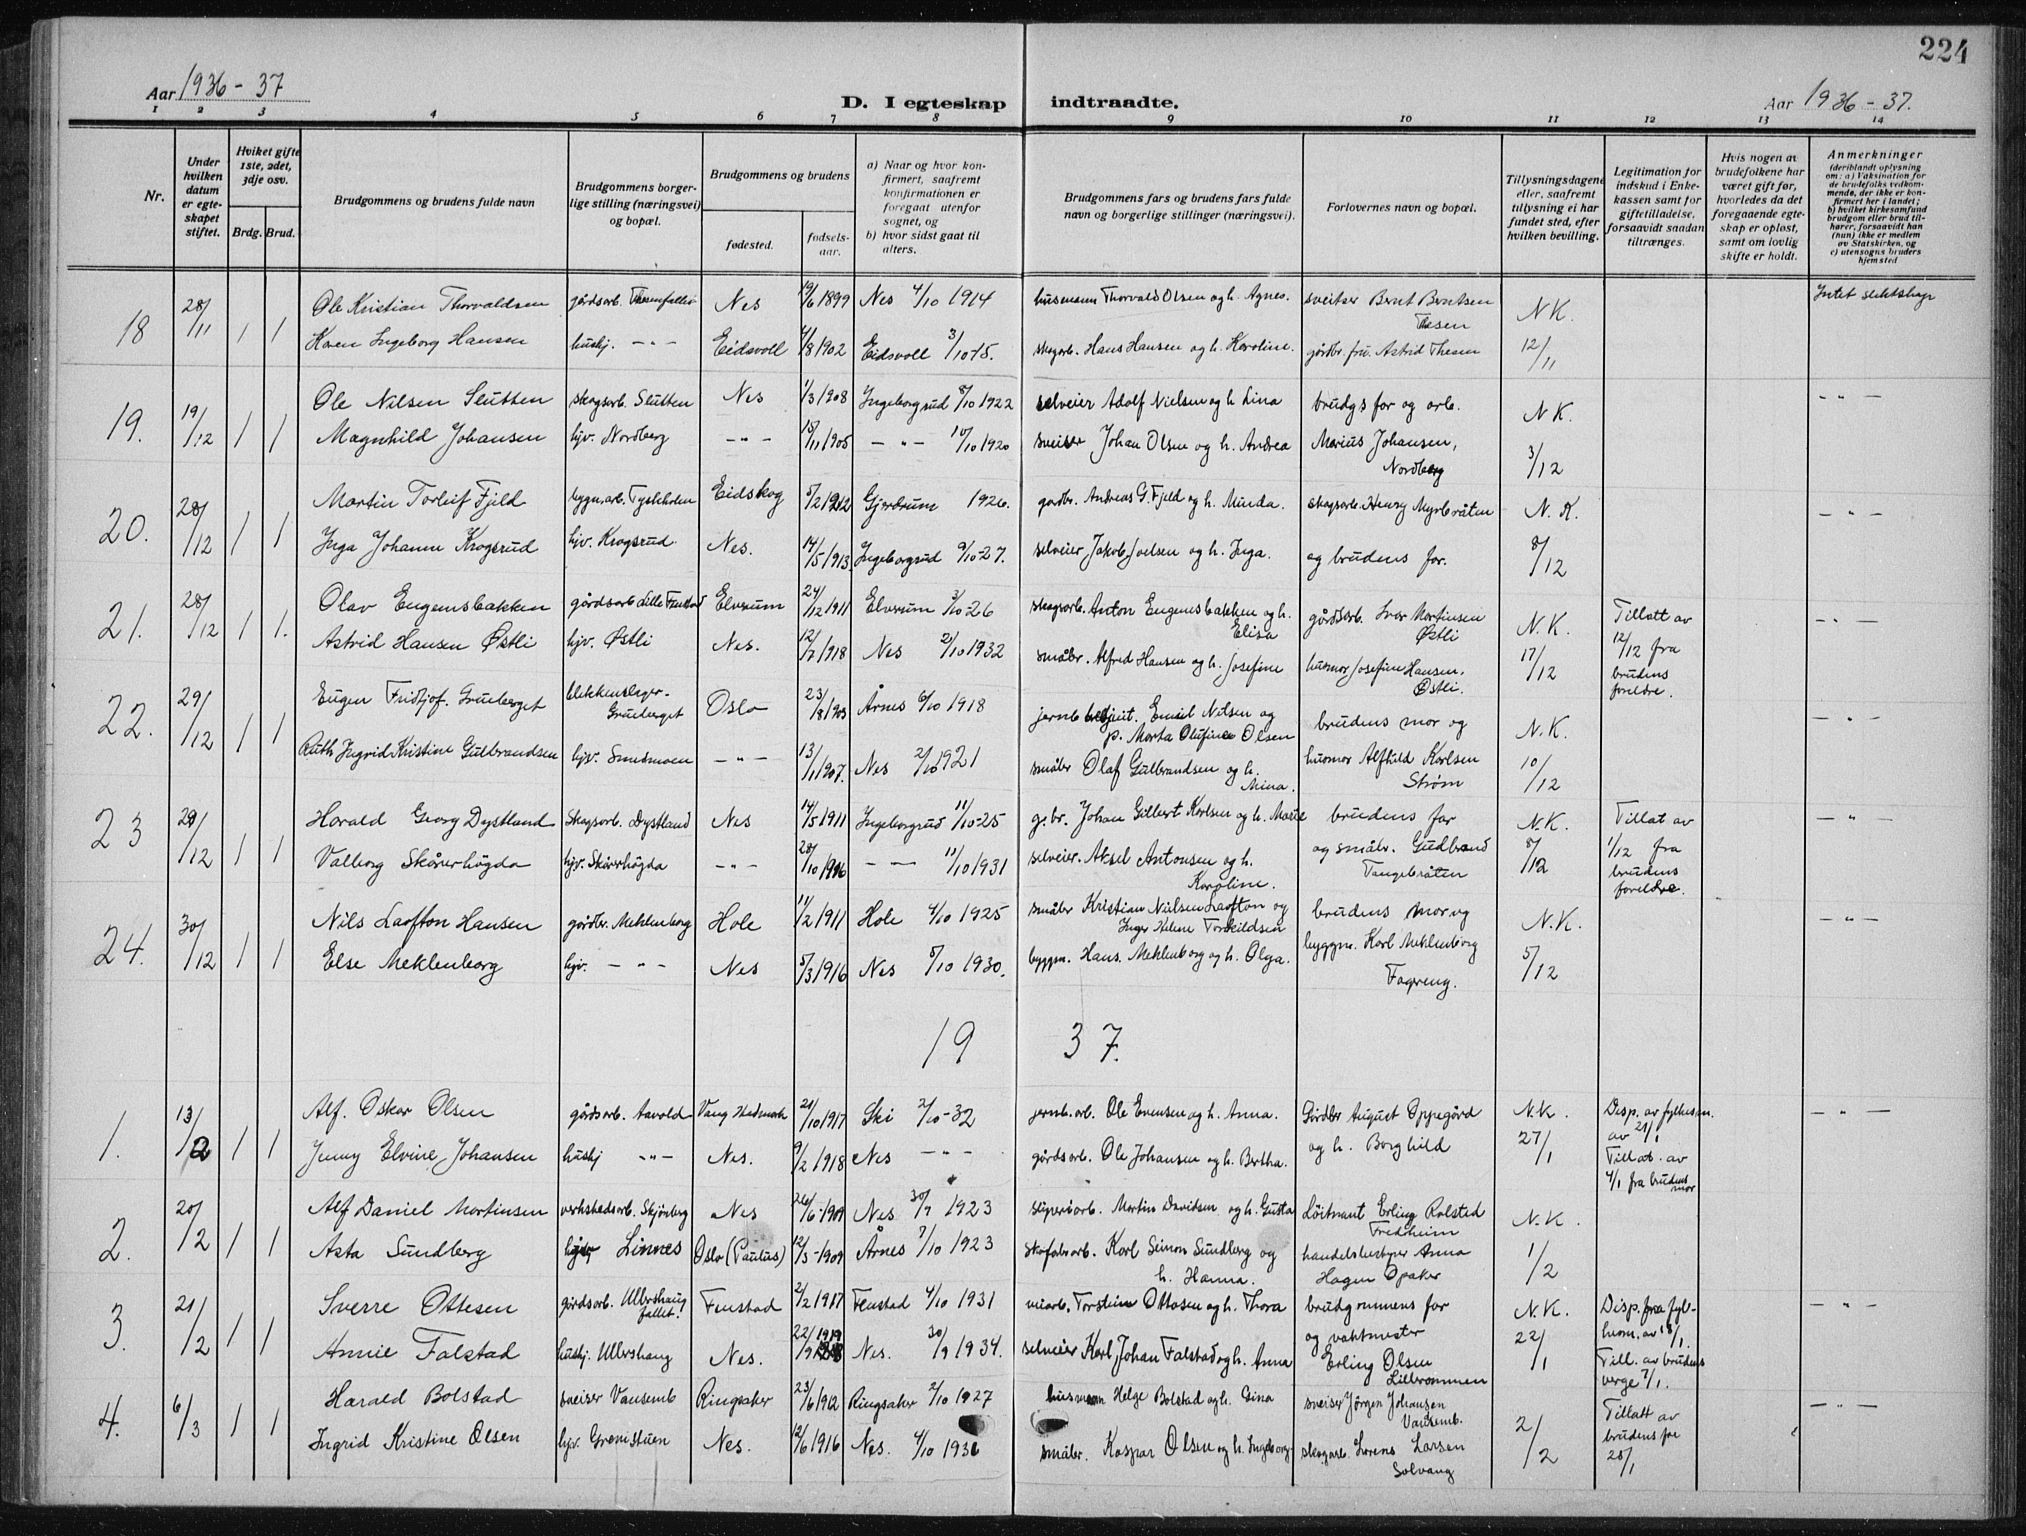 224
Aar 1936-37
D. I egteskap indtraadte.
Aar 1936-37.
1 2 3 4 5 6 7 8 9 10 11 12 13 14
Nr.
Under hvilken datum er egteskapet stiftet.
Hviket gifte 1ste, 2det, 3dje osv.
Brdg. Brud.
Brudgommens og brudens fulde navn
Brudgommens borgerlige stilling (næringsvei) og bopæl.
Brudgommens og brudens
fødested.
fødselsaar.
a) Naar og hvor konfirmert, saafremt konfirmationen er foregaat utenfor sognet, og
b) hvor sidst gaat til alters.
Brudgommens fars og brudens fars fulde navn og borgerlige stillinger (næringsvei).
Forlovernes navn og bopæl.
Tillysningsdagene eller, saafremt tillysning ei har fundet sted, efter hvilken bevilling.
Legitimation for indskud i Enkekassen samt for giftetilladelse, forsaavidt saadan tiltrænges.
Hvis nogen av brudefolkene har været gift før, hvorledes da det foregaaende egteskap er opløst, samt om lovlig skifte er holdt.
Anmerkninger
(deriblandt oplysning om: a) Vaksination for de brudefolks vedkommende, der ikke er konfirmert her i landet; b) hvilket kirkesamfund brudgom eller brud tilhører, forsaavidt han (hun) ikke er medlem av Statskirken, og c) utensogns bruders hjemsted
18 28/11 1 1 Ole Kristian Thorvaldsen gårdsarb. Nes 19/6 1899 Nes 4/10 1914 husmann Thorvald Olsen og h. Agnes. sveitser Bernt Berntsen Thesen N K. Intet slektskap
Karen Ingeborg Hansen hushj. - " - Eidsvoll 4/8 1902 Eidsvoll 3/10-15. skogarb. Hans Hansen og h. Karoline. gårdbr. fru Astrid Thesen 12/11
19. 19/12 1 1 Ole Nilsen Slutten skogsarb. Slutten Nes 1/3 1908 Ingeborgrud 8/10 1922 selveier Adolf Nielsen og h Lina brudgs far og arb. N K. - " -
Magnhild Johansen hjv. Nordberg - " - 15/11 1905 - " - 10/10 1920 sveiser Johan Olsen og h. Andrea Marius Johansen, Nordberg 3/12
20. 28/12 1 1 Martin Torleif Fjeld Eidskog 5/2 1912 Gjerdrum 1926. gardbr. Andreas G. Fjeld og h. Minda. skogsarb. Henry Myrbråten N. K. - " -
Inga Johanne Krogsrud hjv. Krogsrud Nes. 14/5 1913. Ingeborgrud 9/10-27. selveier Jakob Joelsen og h. Inga. og brudens far. 8/12
21. 28/12 1 1. Olav Engemsbakken gårdsarb Lille Fenstad Elverum 24/12 1911 Elverum 3/10-26 skogsarb. Anton Engemsbakken og h. Elisa gårdsarb. Ivar Martinsen Østli N. K. Tillatt av 12/12 fra brudens foreldre. - " -
Astrid Hansen Østli hjv. Østli Nes. 12/7 1918 Nes 2/10 1932 småbr. Alfred Hansen og h. Josefine husmor Josefine Hansen, Østli. 17/12
22. 29/12 1 1 Eugen Fridtjof. Grueberget blikkenslager. Gruberget Oslo 23/8 1903 Årnes 6/10 1918 Emil Nilsen og p. Marta Olufine Olsen brudens mor og N. K. - " -
Ruth Ingrid Kristine Gulbrandsen hjv. Smedmoen - " - 13/11 1907. Nes 2/10 1921 småbr Olaf Gulbrandsen og h. Mina. husmor Alfhild Karlsen Strøm 10/12
23 29/12 1 1 Harald Georg Dystland Skogsarb. Dystland Nes 14/5 1911 Ingeborgrud 11/10-25 g.br. Johan Gilbert Karlsen og h. Marie brudens far N. K. Tillat av 1/12 fra brudens foreldre. - " -
Valborg Skårerhøgda hjv. Skårerhøgda - " - 28/10 1916 - " - 11/10 1931 selveier. Aksel Antonsen og h. Karoline. og småbr. Gudbrand Tangebråten 8/12
24. 30/12 1 1 Nils Laofton Hansen gårdbr. Meklenborg Hole 11/2 1911 Hole 4/10 1925 småbr Kristian Nielsen Laofton og Inger Helene Torkildsen brudens mor og N. K. - " -
Else Meklenborg hjv. - " - Nes 5/3 1916 Nes 5/10 1930. byggm. Hans Meklenborg og h. Olga. byggm. Karl Meklenborg Fagreng. 5/12
19 37.
1. 13/2 1 1 Alf. Oskar Olsen gårdsarb. Aavold Vang Hedmark 21/10 1917 Ski 2/10-32 jernb.arb. Ole Evensen og h. Anna. Gårdbr August Oppegård N. K. Disp. av fylkesm. av 21/1 Tillat. av 4/1 fra brudens mor - " -
Jenny Elvine Johansen hushj - " - Nes. 9/2 1918 Nes - " - gårdsarb. Ole Johansen og h. Bertha. og h. Borghild 27/1
2. 20/2 1 1 Alf Daniel Martinsen verkstedsarb. Skjønberg Nes 26/6-1909 Nes 30/9 1923 sliperiarb. Martin Davidsen og h. Gusta Løitnant Erling Rolstad Fredheim N. K.
Asta Sundberg Linnes Oslo (Paulus) 12/5-1909 Årnes 7/10 1923 skofabarb. Karl Simon Sundberg og h. Hanna. handelsbestyrer Anna Hagen Opaker 1/2
3. 21/2 1 1 Sverre Ottesen gårdsarb. Ullershaug fallet. Fenstad 2/2 1917 Fenstad 4/10 1931 veiarb. Torstein Ottosen og h. Thora brudgommens far N. K. Disp. fra fylkesm. av 18/1. Till. av brudens verge 7/1. - " -
Annie Falstad hushj. Ullershaug Nes. 22/9 1919 Nes. 30/9 1934. selveier Karl Johan Falstad og h. Anna og vaktmester Erling Olsen Lillerommen 22/1
4. 6/3 1 1 Harald Bolstad sveiser Vansemb Ringsaker 23/6 1912 Ringsaker 2/10 1927 husmann Helge Bolstad og h. Gina sveiser Jørgen Johansen Vansemb. 2/2 Tillatt av brudens far 28/1 - " -
Ingrid Kristine Olsen hjv. Grenistuen Nes. 12/6 1916 Nes. 4/10 1936 småbr. Kaspar Olsen og h. Ingeborg. skogarb. Lorens Larsen Solvang